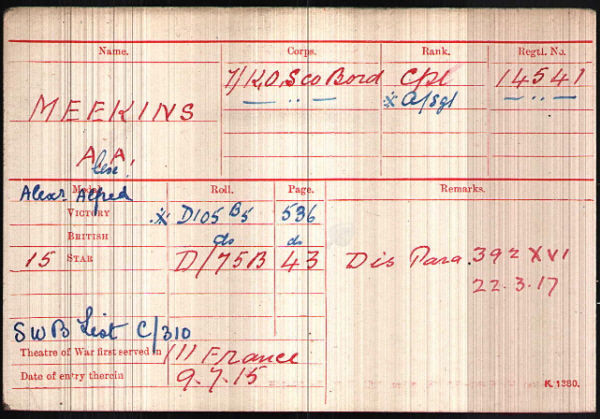 Name. Corps. Rank. Regtl. No.
7/K.O.Sco Bord Cpl 14541
MEEKINS — „ — ※ A/Sgt — „ —
A. A.
Alexr. Alfred
Medal. Roll. Page. Remarks.
Victory ※ D105 B5 536
British do do
15 Star D/75B 43 Dis Para. 392 XVI
22.3.17
SWB List C/310
Theatre of War first served in 111 France
Date of entry therein 9.7.15 K. 1380.